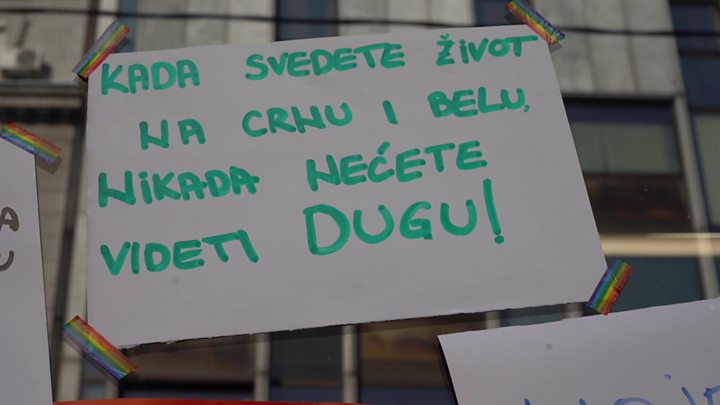 KADA SVEDETE ŽIVOT
NA CRNU I BELU,
NIKADA NEĆETE
VIDETI DUGU!